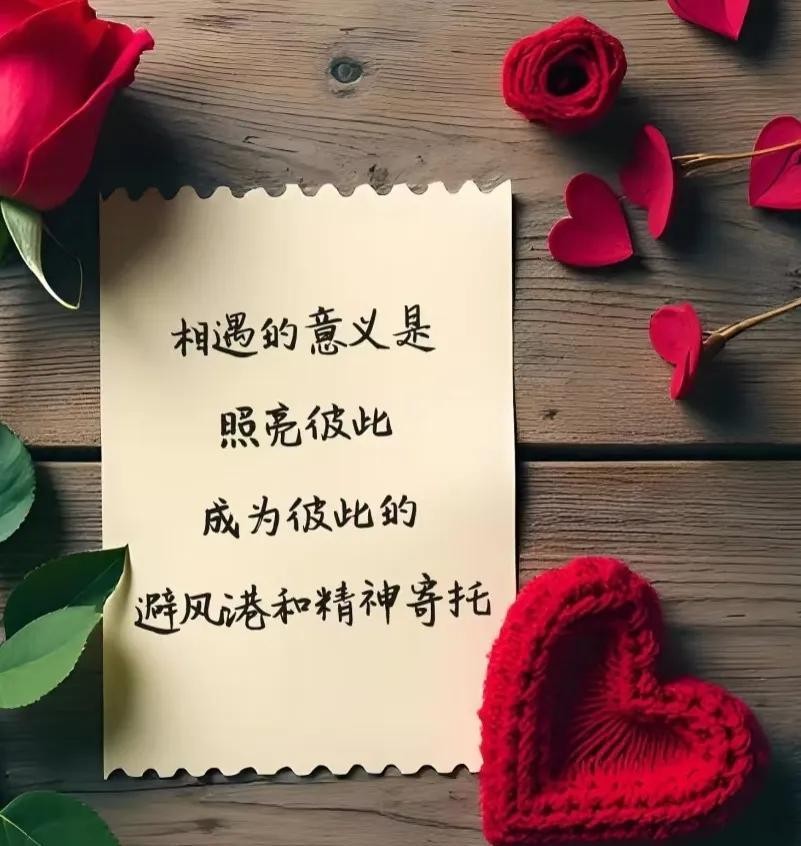 相遇的意义是
照亮彼此
成为彼此的
避风港和精神寄托